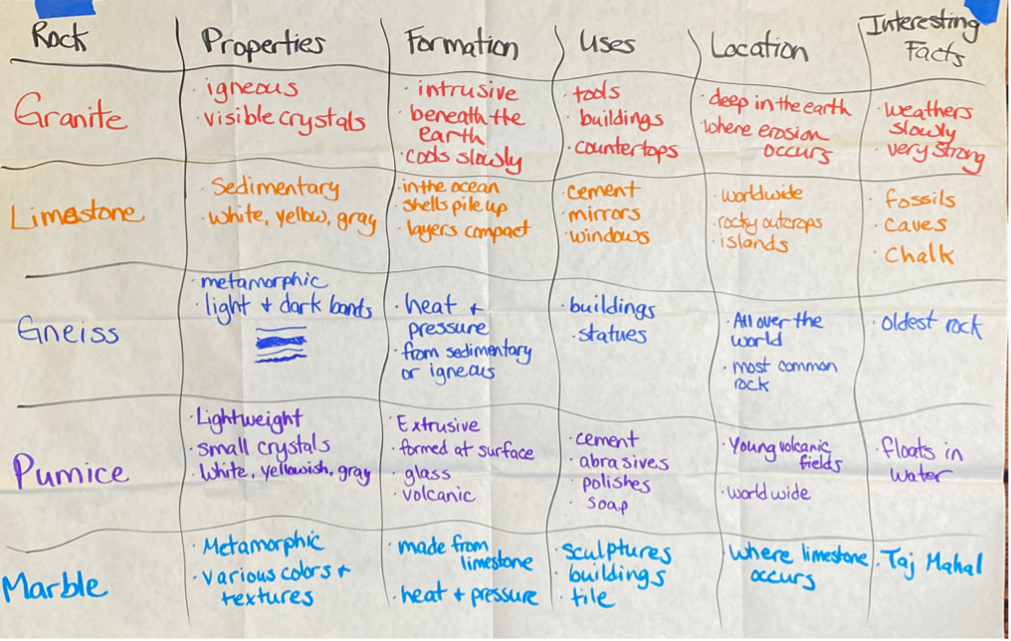 Rock Properties Formation Uses Location Interesting Facts
Granite
· igneous
· visible crystals
· intrusive
· beneath the
earth
· cools slowly
· tools
· buildings
· countertops
· deep in the earth
· where erosion
occurs
· weathers
slowly
· very strong
Limestone
· Sedimentary
· white, yellow, gray
· in the ocean
· shells pile up
· layers compact
· cement
· mirrors
· windows
· worldwide
· rocky outcrops
· islands
· fossils
· caves
· chalk
Gneiss
· metamorphic
· light + dark bands
· heat +
pressure
· from sedimentary
or igneous
· buildings
· statues
· All over the
world
· most common
rock
· oldest rock
Pumice
· Lightweight
· small crystals
· White, yellowish, gray
· Extrusive
· formed at surface
· glass
· volcanic
· cement
· abrasives
· polishes
· soap
· Young volcanic
fields
· worldwide
· floats in
water
Marble
· Metamorphic
· various colors +
textures
· made from
limestone
· heat + pressure
· sculptures
· buildings
· tile
· where limestone
occurs
· Taj Mahal